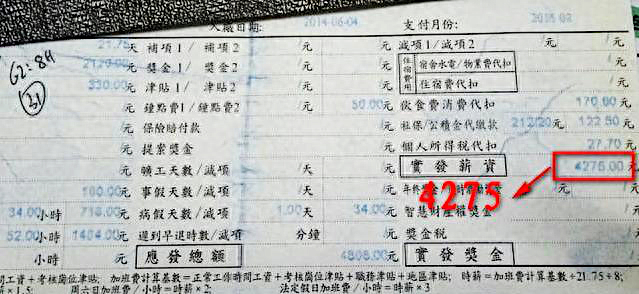 入廠日期: 2014-06-04 支付月份:
21.75 天 補項1/ 補項2 /元 減項1/減項2 / /元
2120.00 元 獎金1/ 獎金2 /元 住宿費用 宿舍水電/物業費代扣 /元
330.00 元 津貼1/ 津貼2 /元 住宿費代扣 /元
/元 鐘點費1/鐘點費2 50.00 元 飲食費消費代扣 170.00 元
/元 保險賠付款 /元 社保/公積金代繳款 212/20 元 122.50 元
/元 提案獎金 /元 個人所得稅代扣 27.70 元
/元 曠工天數/減項 /天 /元 實發薪資 4275.00 元
160.00 元 事假天數/減項 /天 /元
34.00 小時 718.00 元 病假天數/減項 1.00 天 34.00 元 智慧財產權獎金 /元
52.00 小時 1484.00 元 遲到早退時數/減項 分鐘 /元 獎金稅 /元
小時 /元 應發總額 元 實發獎金
4275
62:84
31
工資+考核崗位津貼; 加班費計算基數=正常工作時間工資+考核崗位津貼+職務津貼+地區津貼; 時薪=加班費計算基數÷21.75÷8;
×1.5; 周六日加班費/小時=時薪×2; 法定假日加班費/小時=時薪×3